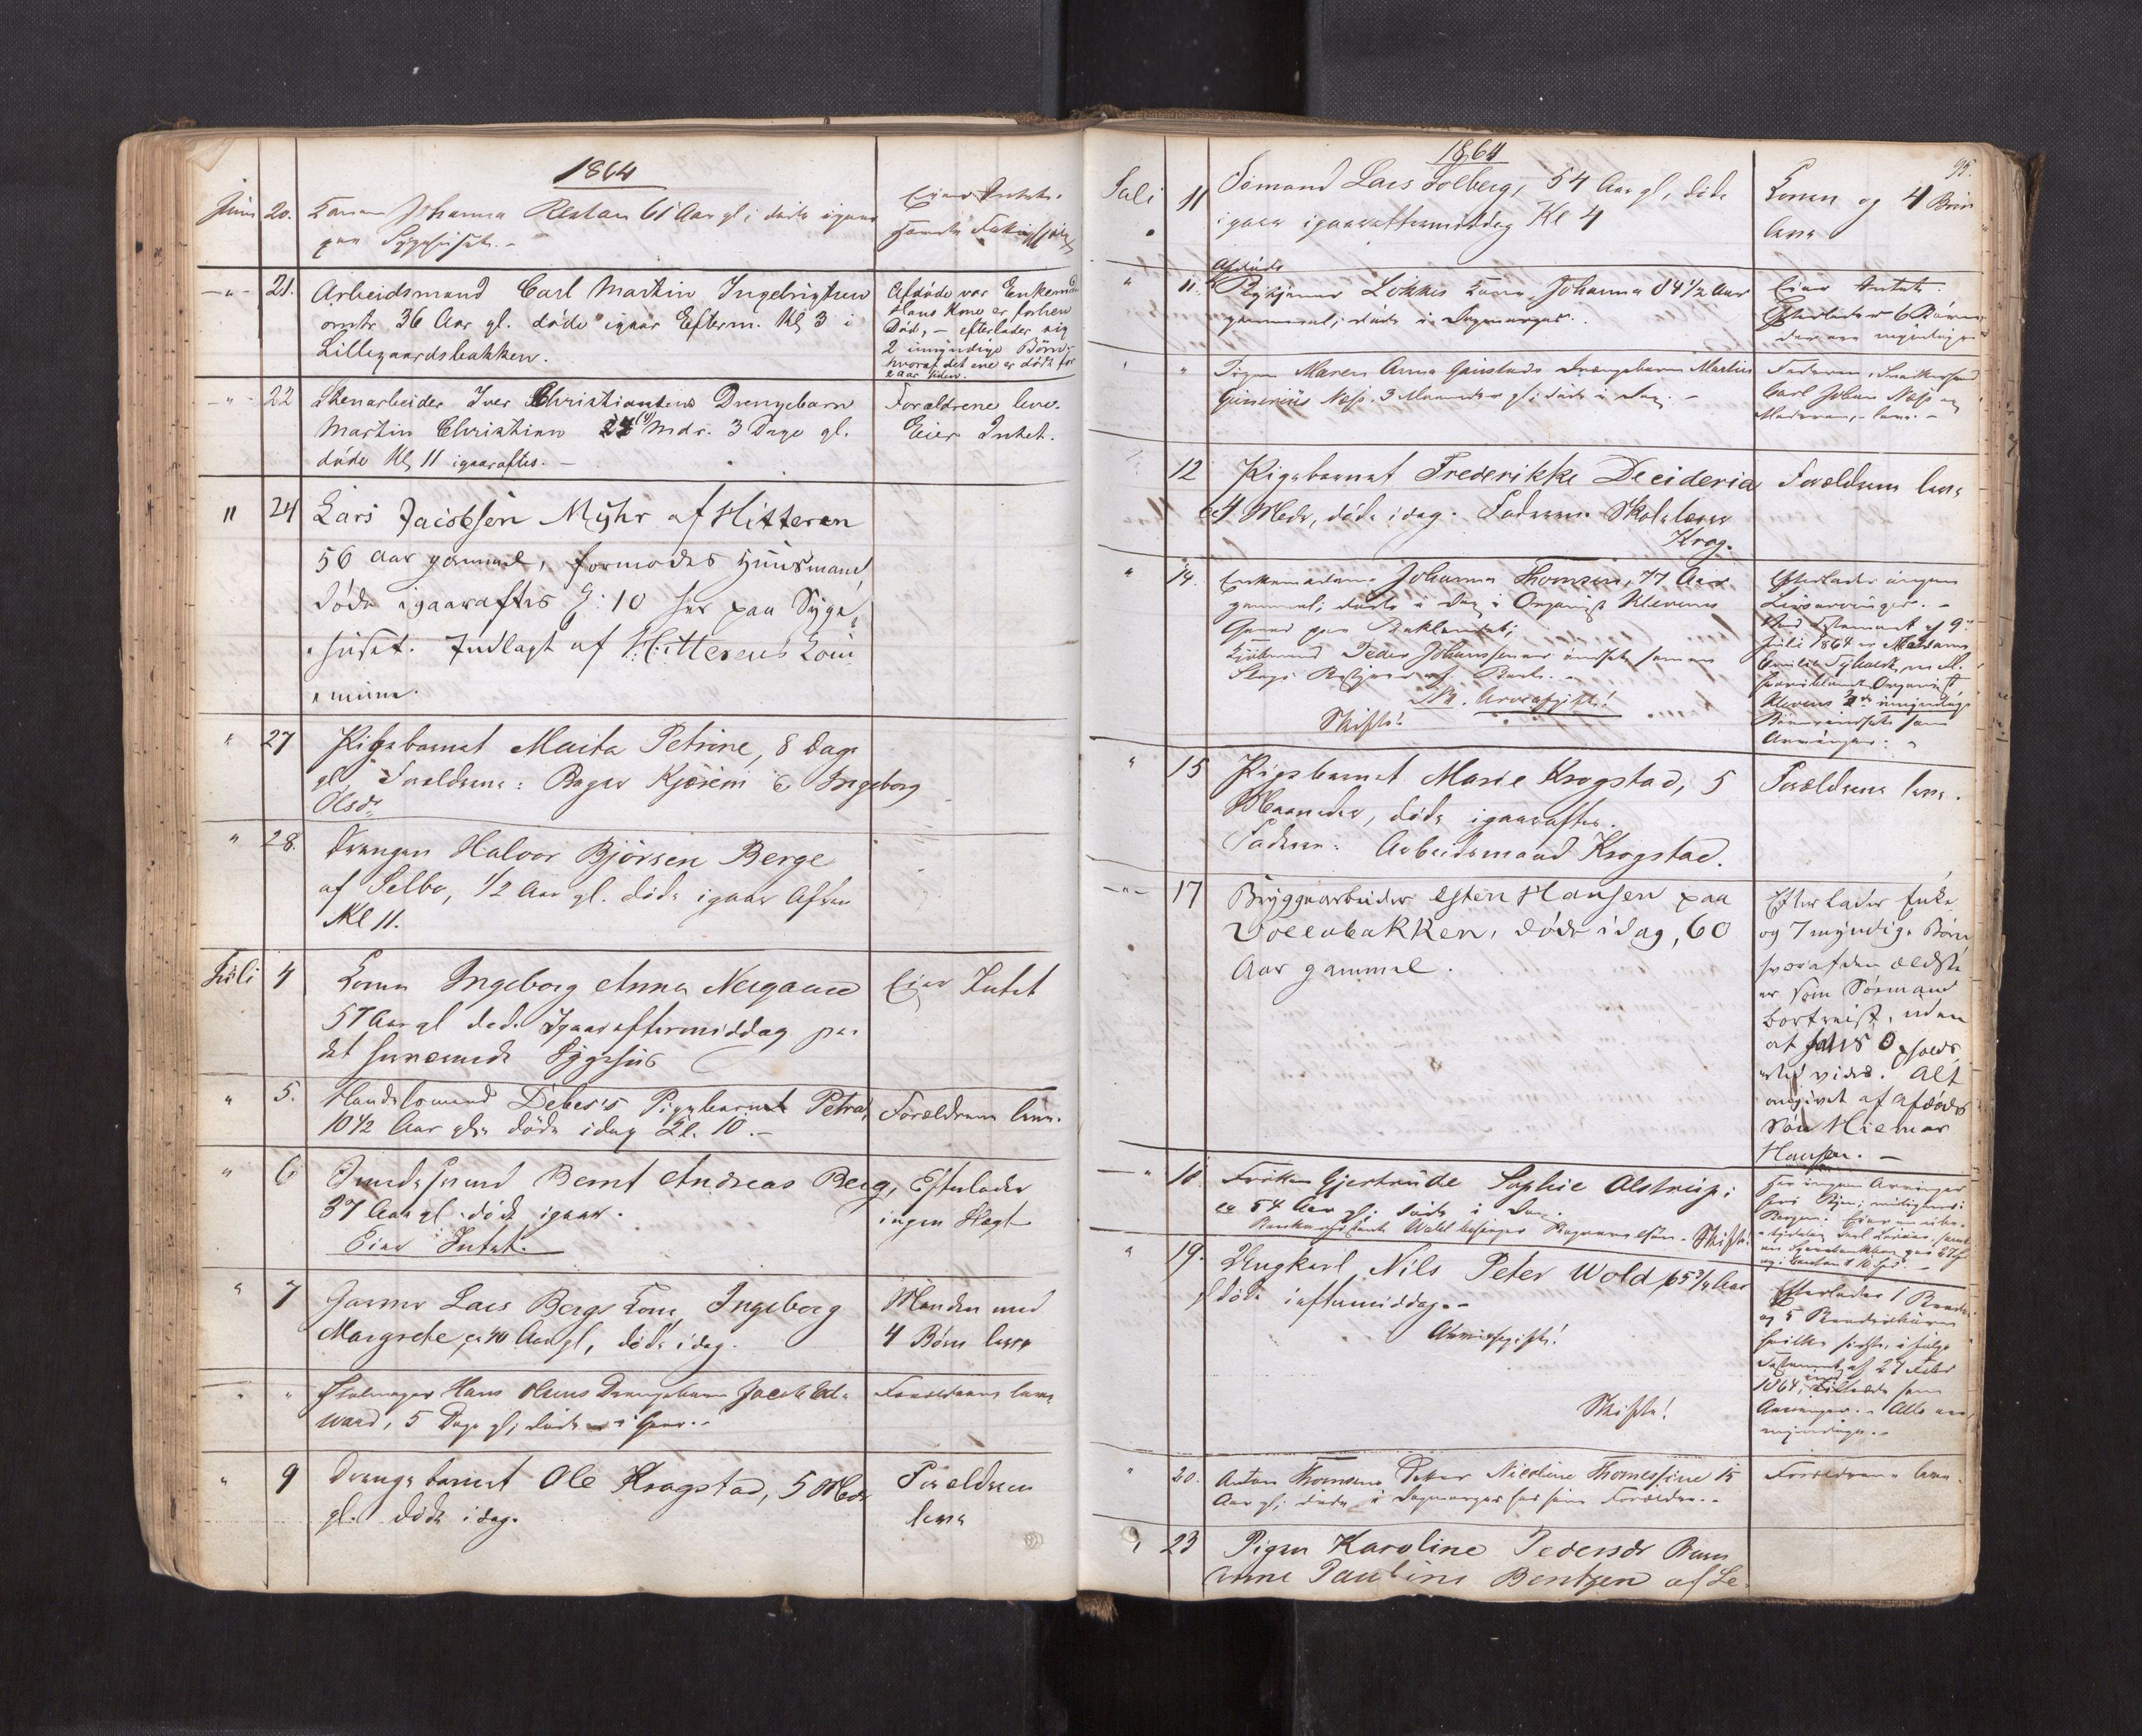 1864
Juni 20. Konen Johanna Restan 61 Aar gl; døde igaar
paa Sygehuset. -
Eier Intet.
-"- 21. Arbeidsmand Carl Martin Ingebrigtsen
omtr. 36 Aar gl. døde igaar Efterm. Kl. 3 i
Lillegaardsbakken.
Afdøde var Enkemd.
Hans Kone er forhen
Død, - efterlader sig
2 umyndige Børn,
hvoraf det ene er død for
2 Aar siden.
-"- 22 Stenarbeider Iver Christiansens Drengebarn
Martin Christian (4) Mdr. 3 Dage gl.
døde Kl. 11 igaaraftes. -
Forældrene leve.
Eier Intet.
" 24 Lars Jacobsen Myhr af Hitteren
56 Aar gammel, formodes Huusmand,
døde igaaraftes Kl: 10 her paa Syge-
huset. Indlagt af Hitterens Kom-
mune.
" 27 Pigebarnet Marta Petrine, 8 Dage
gl. Forældrene: Bager Kjørem & Ingeborg
Olsdr
" 28. Drengen Halvor Bjørsen Berge
af Selbo, 1/2 Aar gl. døde igaar Aften
Kl 11.
Juli 4 Konen Ingeborg Anna Nergaard
57 Aar gl døde Igaareftermiddag paa
det herværende Sygehus
Eier Intet
" 5. Handelsmand Debes's Pigebarn Petra,
10 1/2 Aar gl. døde idag Kl. 10. -
Forældrene leve.
" 6 Bernt Andreas Berg,
37 Aar gl. døde igaar.
Eier Intet.
Efterlader
ingen Slægt
" 7 Garver Lars Bergs Kone, Ingeborg
Margrete, ca 40 Aar gl, døde idag.
Manden med
4 Børn leve
" " Hans Olsens Drengebarn Jacob Ed-
ward, 5 Dage gl; døde i Gaar. -
Forældrene leve.
" 9 Drengebarnet Ole Krogstad, 5 Mdr
gl. døde idag.
Forældrene
leve
1864
95.
Juli 11 Sømand Lars Solberg, 54 Aar gl, døde
igaar igaareftermiddag Kl 4
Konen og 4 Børn
leve
" 11. Afdøde
Løkkes Kone, Johanna 84 1/2 Aar
gammel; døde i Dagmorges.
Eier Intet.
Efterlader 6 Børn
der ere myndige
" " Pigen Maren Anna Drengebarn Martin
Næss. 3 Maaneder gl; døde i Dag. -
Faderen, Snedkersvend
Carl Johan Næss og
Moderen, leve. -
" 12 Pigebarnet Frederikke Decideria
ca 4 Mdr, døde idag. Faderen: Skolelærer
Krog.
Forældrene leve
" 14. Enkemadame Johanna Thomsen, 77 Aar
gammel; døde i Dag i Organist Klevens
Gaard paa Baklandet;
Kjøbmand Peder Johannsen
NB. Arveafgift!
Skifte!
Efterlader ingen
Livsarvinger. -
Ved Testament af 9de
Juli 1864 er Madame
Organist
Klevens 2de umyndige
Børn indsatte som
Arvinger. "
" 15 Pigebarnet Marie Krogstad, 5
Maaneder, døde igaaraftes.
Faderen: Arbeidsmand Krogstad.
Forældrene leve.
-"- 17 Bryggearbeider Esten Hansen paa
Vollabakken, døde idag, 60
Aar gammel.
Efterlader Enke
og 7 myndige Børn
hvoraf den ældste
er som Sømand
bortreist, uden
at hans Opholds
sted vides. Alt
opgivet af afdødes
Søn Hilmar
Hansen. -
" 18. Frøken Gjertrude Sophie Alstrup;
ca 54 Aar gl; døde i Dag.
Skifte!
Har ingen Arvinger
" 19. Ungkarl Nils Peter Wold, 65 3/4 Aar
døde i eftermiddag. -
Arveafgift!
Skifte!
Efterlader 1 Broder
og 5 Broderbørn
hvilke sidste, i følge
Testament af 27 Febr
1864, som
Arvinger. - Alle ere
myndige. -
" 20. Anton Thomsens Datter Nicoline Thomassine 15
Aar gl; døde i Dagmorges hos sine Forældre. -
Forældrene leve.
" 23 Pigen Karoline Pedersdr Barn
Anne Pauline Bentzen af Le-